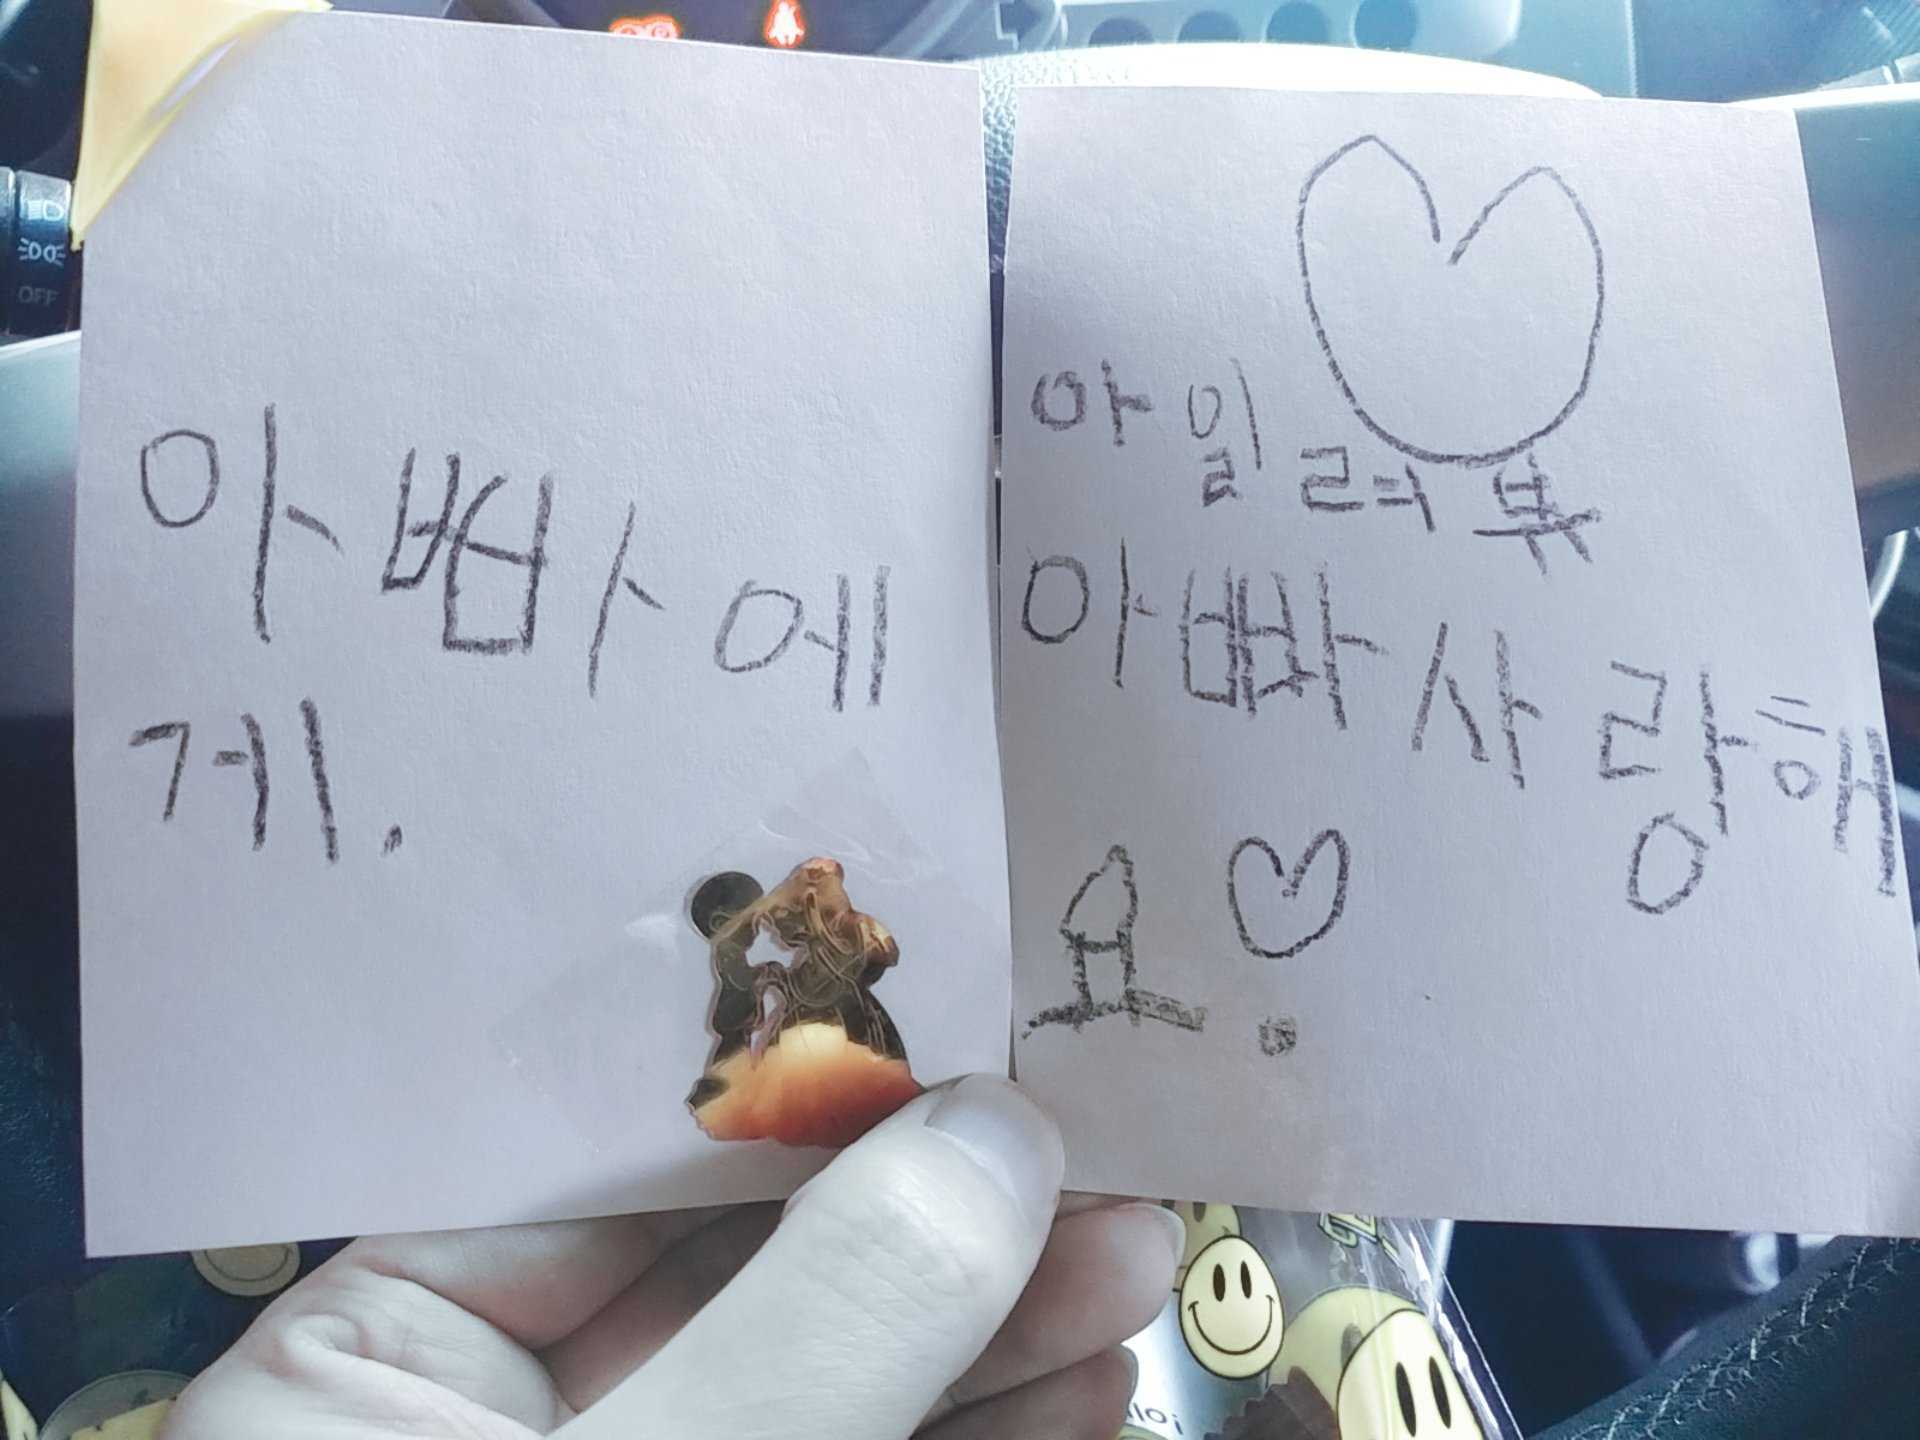 아빠에
게.
아일려뷰
아빠사랑해
요♡.
OFF